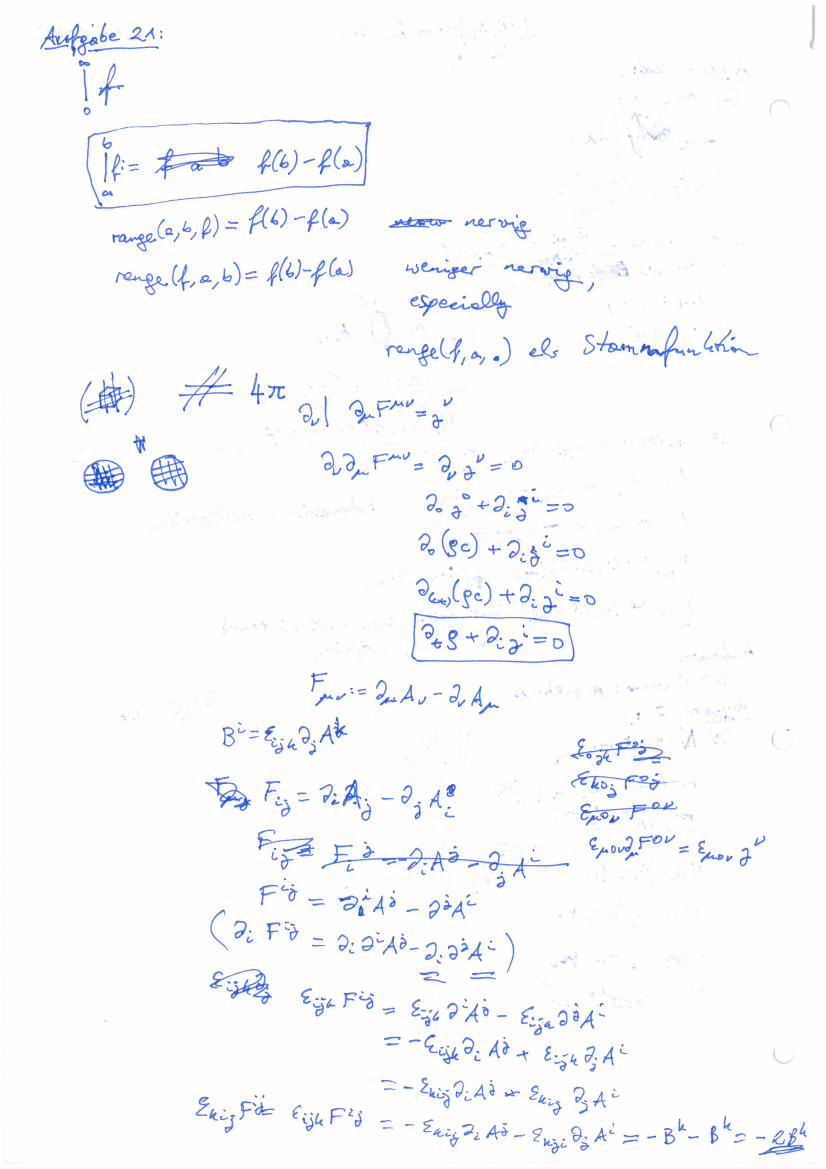 Aufgabe 21:
∞
| f
0
b
| f := f(b) − f(a)
a
range(a,b,f) = f(b) − f(a) nervig
range(f,a,b) = f(b) − f(a) weniger nervig,
especially
range(f,a,•) als Stammfunktion
4π
∂_ν | ∂_μ F^{μν} = j^ν
∂_ν ∂_μ F^{μν} = ∂_ν j^ν = 0
∂_0 j^0 + ∂_i j^i = 0
∂_0 (ρc) + ∂_i j^i = 0
∂_{(ct)} (ρc) + ∂_i j^i = 0
∂_t ρ + ∂_i j^i = 0
F_{μν} := ∂_μ A_ν − ∂_ν A_μ
B^i = ε_{ijk} ∂_j A^k
ε_{0jk} F^{0j}
ε_{k0j} F^{0j}
F_{ij} = ∂_i A_j − ∂_j A_i
ε_{μ0ν} F^{0ν}
ε_{μ0ν} ∂_μ F^{0ν} = ε_{μ0ν} j^ν
F_i^j = ∂_i A^j − ∂_j A^i
F^{ij} = ∂^i A^j − ∂^j A^i
(∂_i F^{ij} = ∂_i ∂^i A^j − ∂_i ∂^j A^i)
ε_{ijk} F^{ij} = ε_{ijk} ∂^i A^j − ε_{ijk} ∂^j A^i
= −ε_{ijk} ∂_i A^j + ε_{ijk} ∂_j A^i
= −ε_{kij} ∂_i A^j + ε_{kij} ∂_j A^i
ε_{kij} F^{ij} = ε_{ijk} F^{ij} = −ε_{kij} ∂_i A^j − ε_{kji} ∂_j A^i = −B^k − B^k = −2B^k